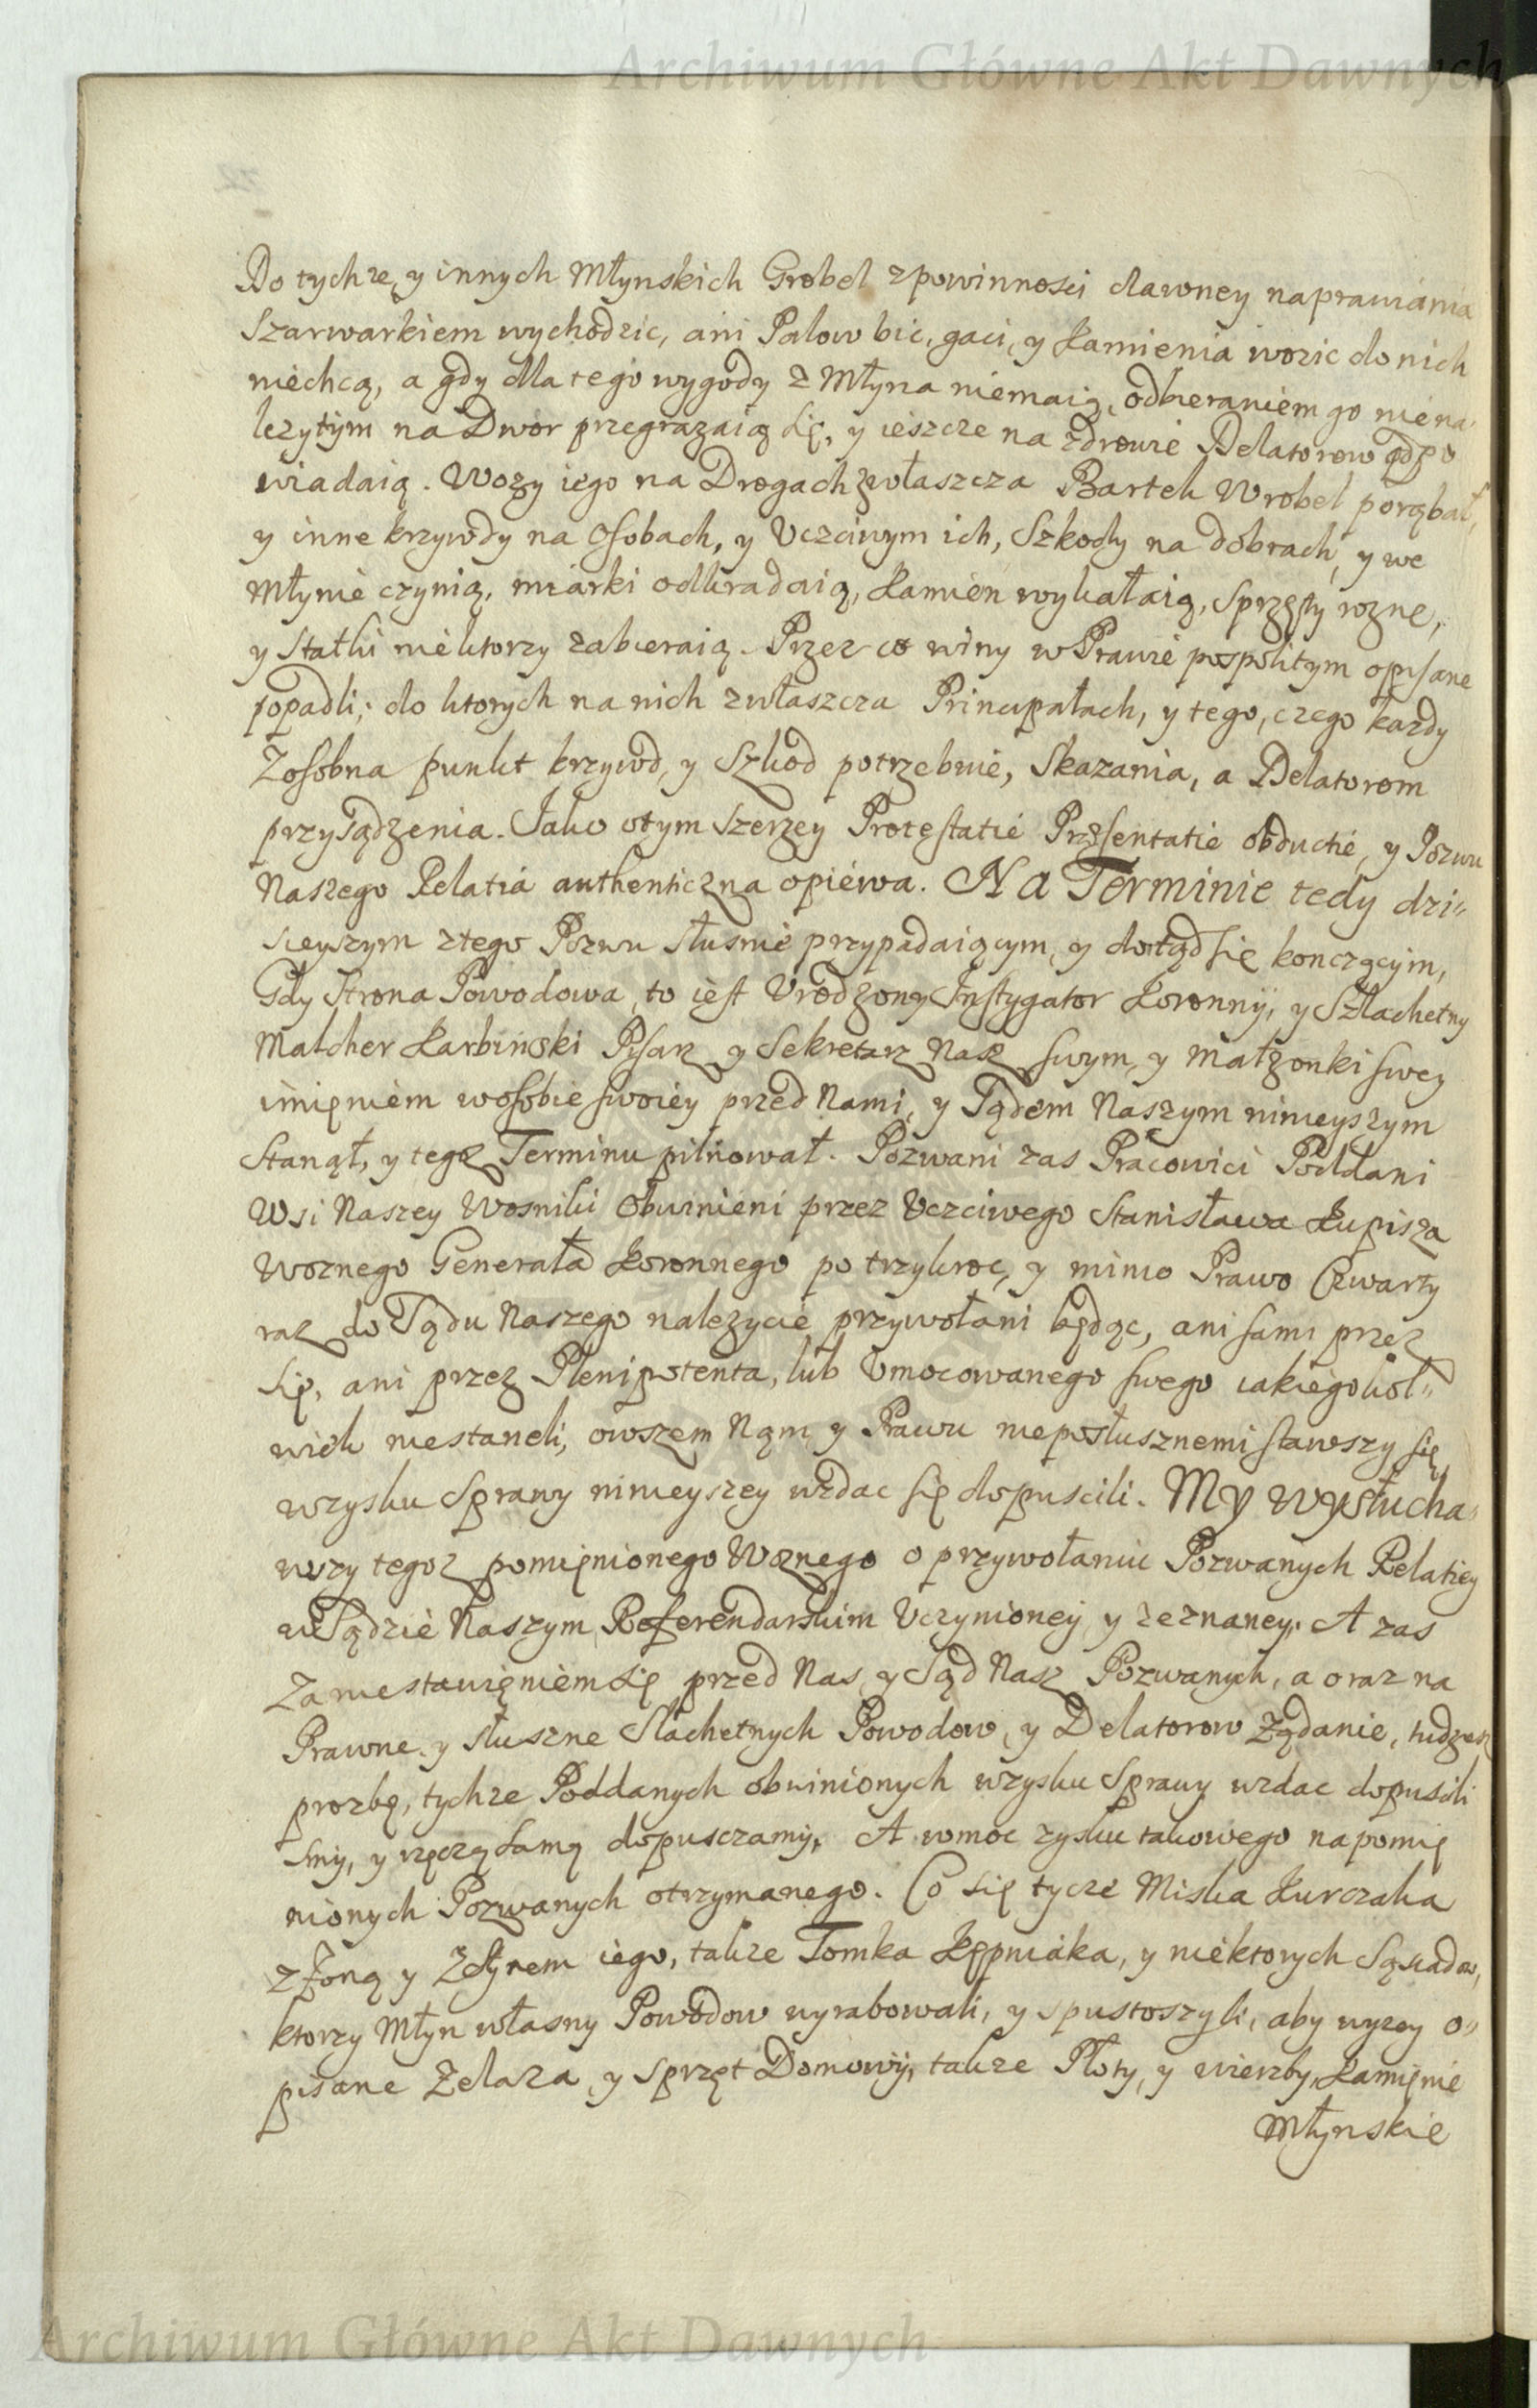 Archiwum Główne Akt Dawnych
Do tychze, y innych Młynskich Grobel z powinnosci dawney naprawiania
Szarwarkiem wychodzic, ani Palow bic, gaci, y Kamienia wozic do nich
niechcą, a gdy dla tego wygody z Młyna niemaią, odbieraniem go niena„
lezytym na Dwor przegrazaią się, y ieszcze na zdrowie Delatorow odpo
wiadaią. Wozy iego na Drogach zwłaszcza Bartek Wrobel porąbał,
y inne krzywdy na Osobach, y Uczciwym ich, Szkody na dobrach, y we
Młynie czynią, miarki odkradaią, Kamien wykałaią, Sprzęty rozne,
y Statki niektorzy zabieraią. Przez co winy w Prawie pospolitym opisane
popadli; do ktorych na nich zwłaszcza Principałach, y tego, czego kazdy
Zosobna punkt krzywd, y Szkod potrzebuie, Skazania, a Delatorom
przysądzenia. Jako o tym szerzey Protestatie Prezentatie obductie, y Pozwu
Naszego Relatia authenticzna opiewa. Na Terminie tedy dzi„
sieyszym z tego Pozwu słusnie przypadaiącym, y dotąd się konczącym,
Gdy Strona Powodowa, to iest Urodzony Instygator Koronny, y Szlachetny
Malcher Karbinski Pisarz y Sekretarz Nasz swym, y małzonki swey
imięniem w osobie swoiey przed Nami, y Sądem Naszym ninieyszym
Stanął, y tegoz Terminu pilnował. Pozwani zas Pracowici Poddani
Wsi Naszey Wosniki Obwinieni przez Uczciwego Stanisława Kupisza
Woznego Generała Koronnego po trzykroc, y mimo Prawo Czwarty
raz do Sądu Naszego nalezycie przywołani będąc, ani sami przez
się, ani przez Plenipotenta, lub Umocowanego swego iakiegokol„
wiek niestaneli, owszem Nam y Prawu nieposłusznemi stawszy się
wzysku Sprawy ninieyszey wzdac się dopuscili. My wysłucha„
wszy tegoz pomięnionego Woznego o przywołaniu Pozwanych Relatiey
w Sądzie Naszym Referendarskim Uczynioney y zeznaney. A zas
Za niestawięniem się przed Nas, y Sąd Nasz Pozwanych, a oraz na
Prawne y słuszne Slachetnych Powodow, y Delatorow Ządanie, tudziesz
prozbę, tychze Poddanych obwinionych wzysku Sprawy wzdac dopuscili
smy, y rzeczą samą dopusczamy. A w moc zysku takowego na pomię
nionych Pozwanych otrzymanego. Co się tycze Miska Kurczaka
z Zoną y Zsynem iego, takze Tomka Kępniaka, y niektorych Sąsiadow,
ktorzy Młyn własny Powodow wyrabowali, y spustoszyli, aby wyzey o„
pisane Zelaza, y sprzęt Domowy, takze Płoty, y wierzby, Kamięnie
Młynskie
Archiwum Główne Akt Dawnych